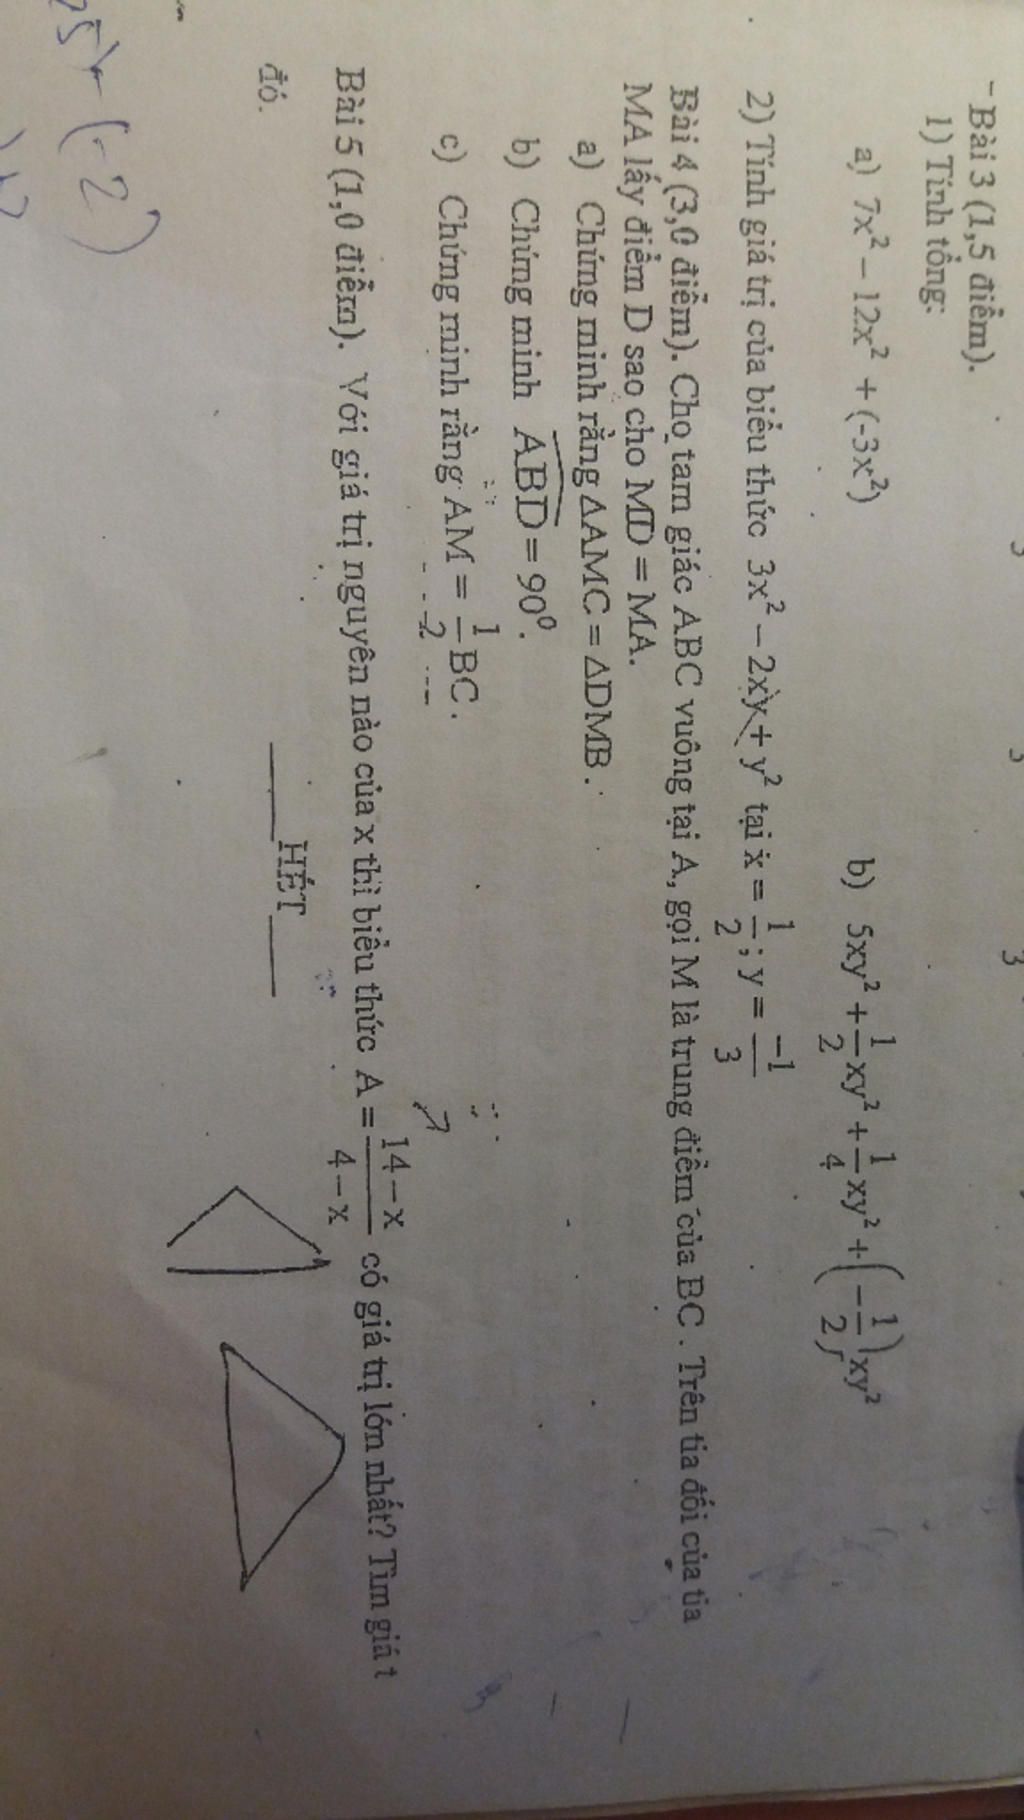 - Bài 3 (1,5 điểm).
1) Tính tổng:
a) 7x² − 12x² + (-3x²) b) 5xy² + 1/2 xy² + 1/4 xy² + (−1/2)xy²
2) Tính giá trị của biểu thức 3x² − 2xy + y² tại x = 1/2 ; y = −1/3
Bài 4 (3,0 điểm). Cho tam giác ABC vuông tại A, gọi M là trung điểm của BC. Trên tia đối của tia
MA lấy điểm D sao cho MD = MA.
a) Chứng minh rằng ΔAMC = ΔDMB.
b) Chứng minh \widehat{ABD} = 90⁰.
c) Chứng minh rằng AM = 1/2 BC.
Bài 5 (1,0 điểm). Với giá trị nguyên nào của x thì biểu thức A = (14 − x)/(4 − x) có giá trị lớn nhất? Tìm giá t
đó.
HẾT
(-2)